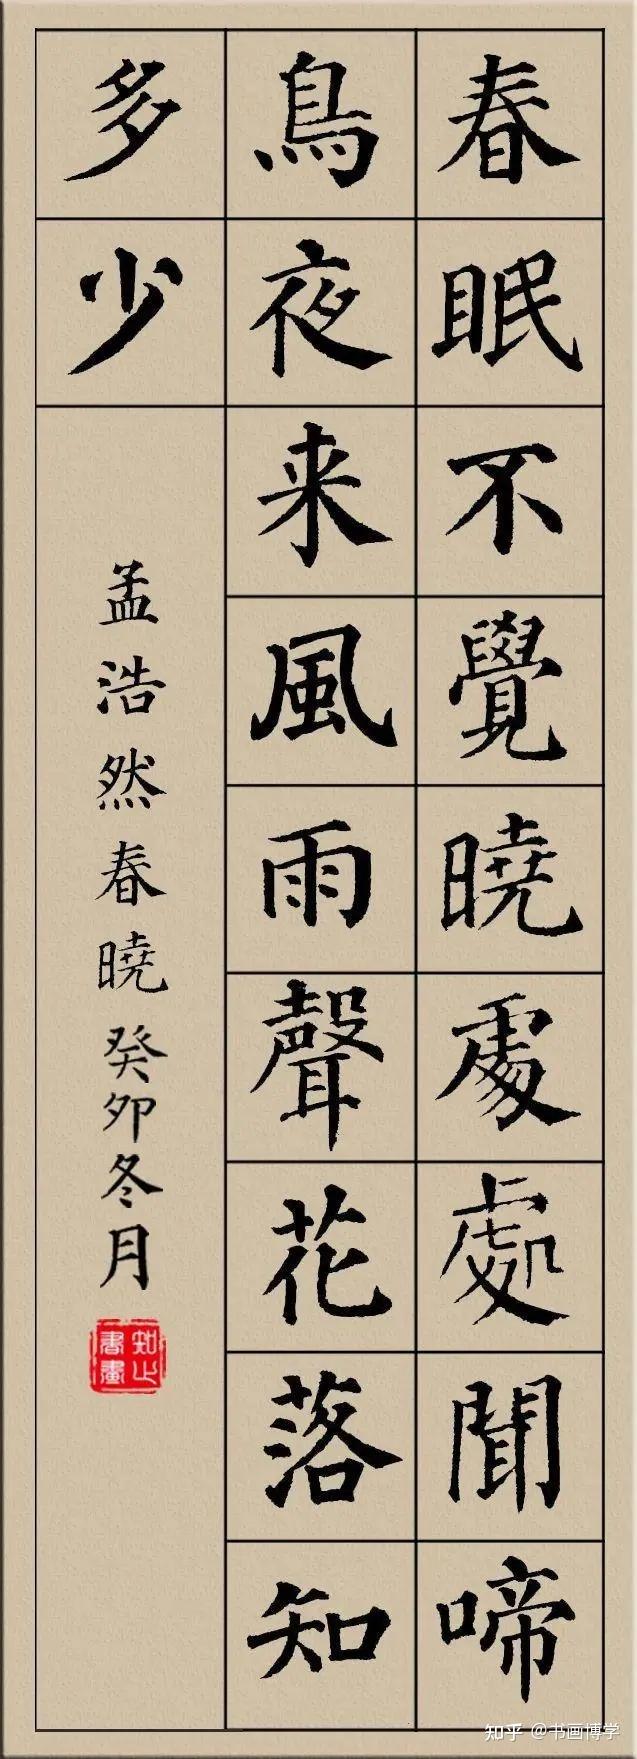 春眠不覺曉處處聞啼
鳥夜来風雨聲花落知
多少
孟浩然春曉癸卯冬月
知止書畫
知乎 @书画博学